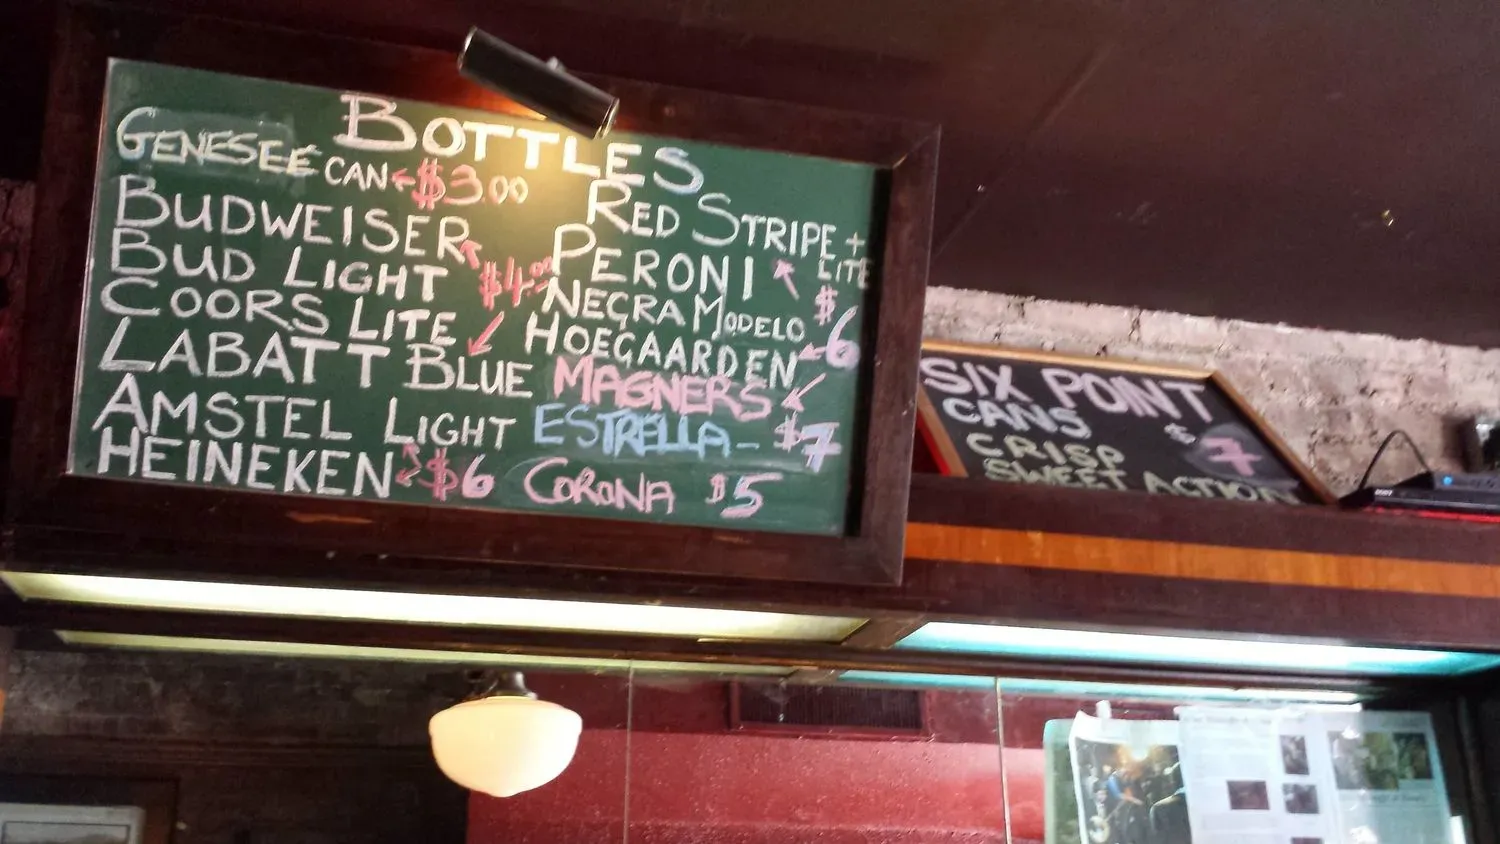 BOTTLES
GENESEE CAN ← $3.00
BUDWEISER
BUD LIGHT $4.00
COORS LITE
LABATT BLUE
AMSTEL LIGHT
HEINEKEN $6
RED STRIPE + LITE
PERONI
NEGRA MODELO $6
HOEGAARDEN
MAGNERS
ESTRELLA - $7
CORONA $5
SIX POINT
CANS $7
CRISP
SWEET ACTION